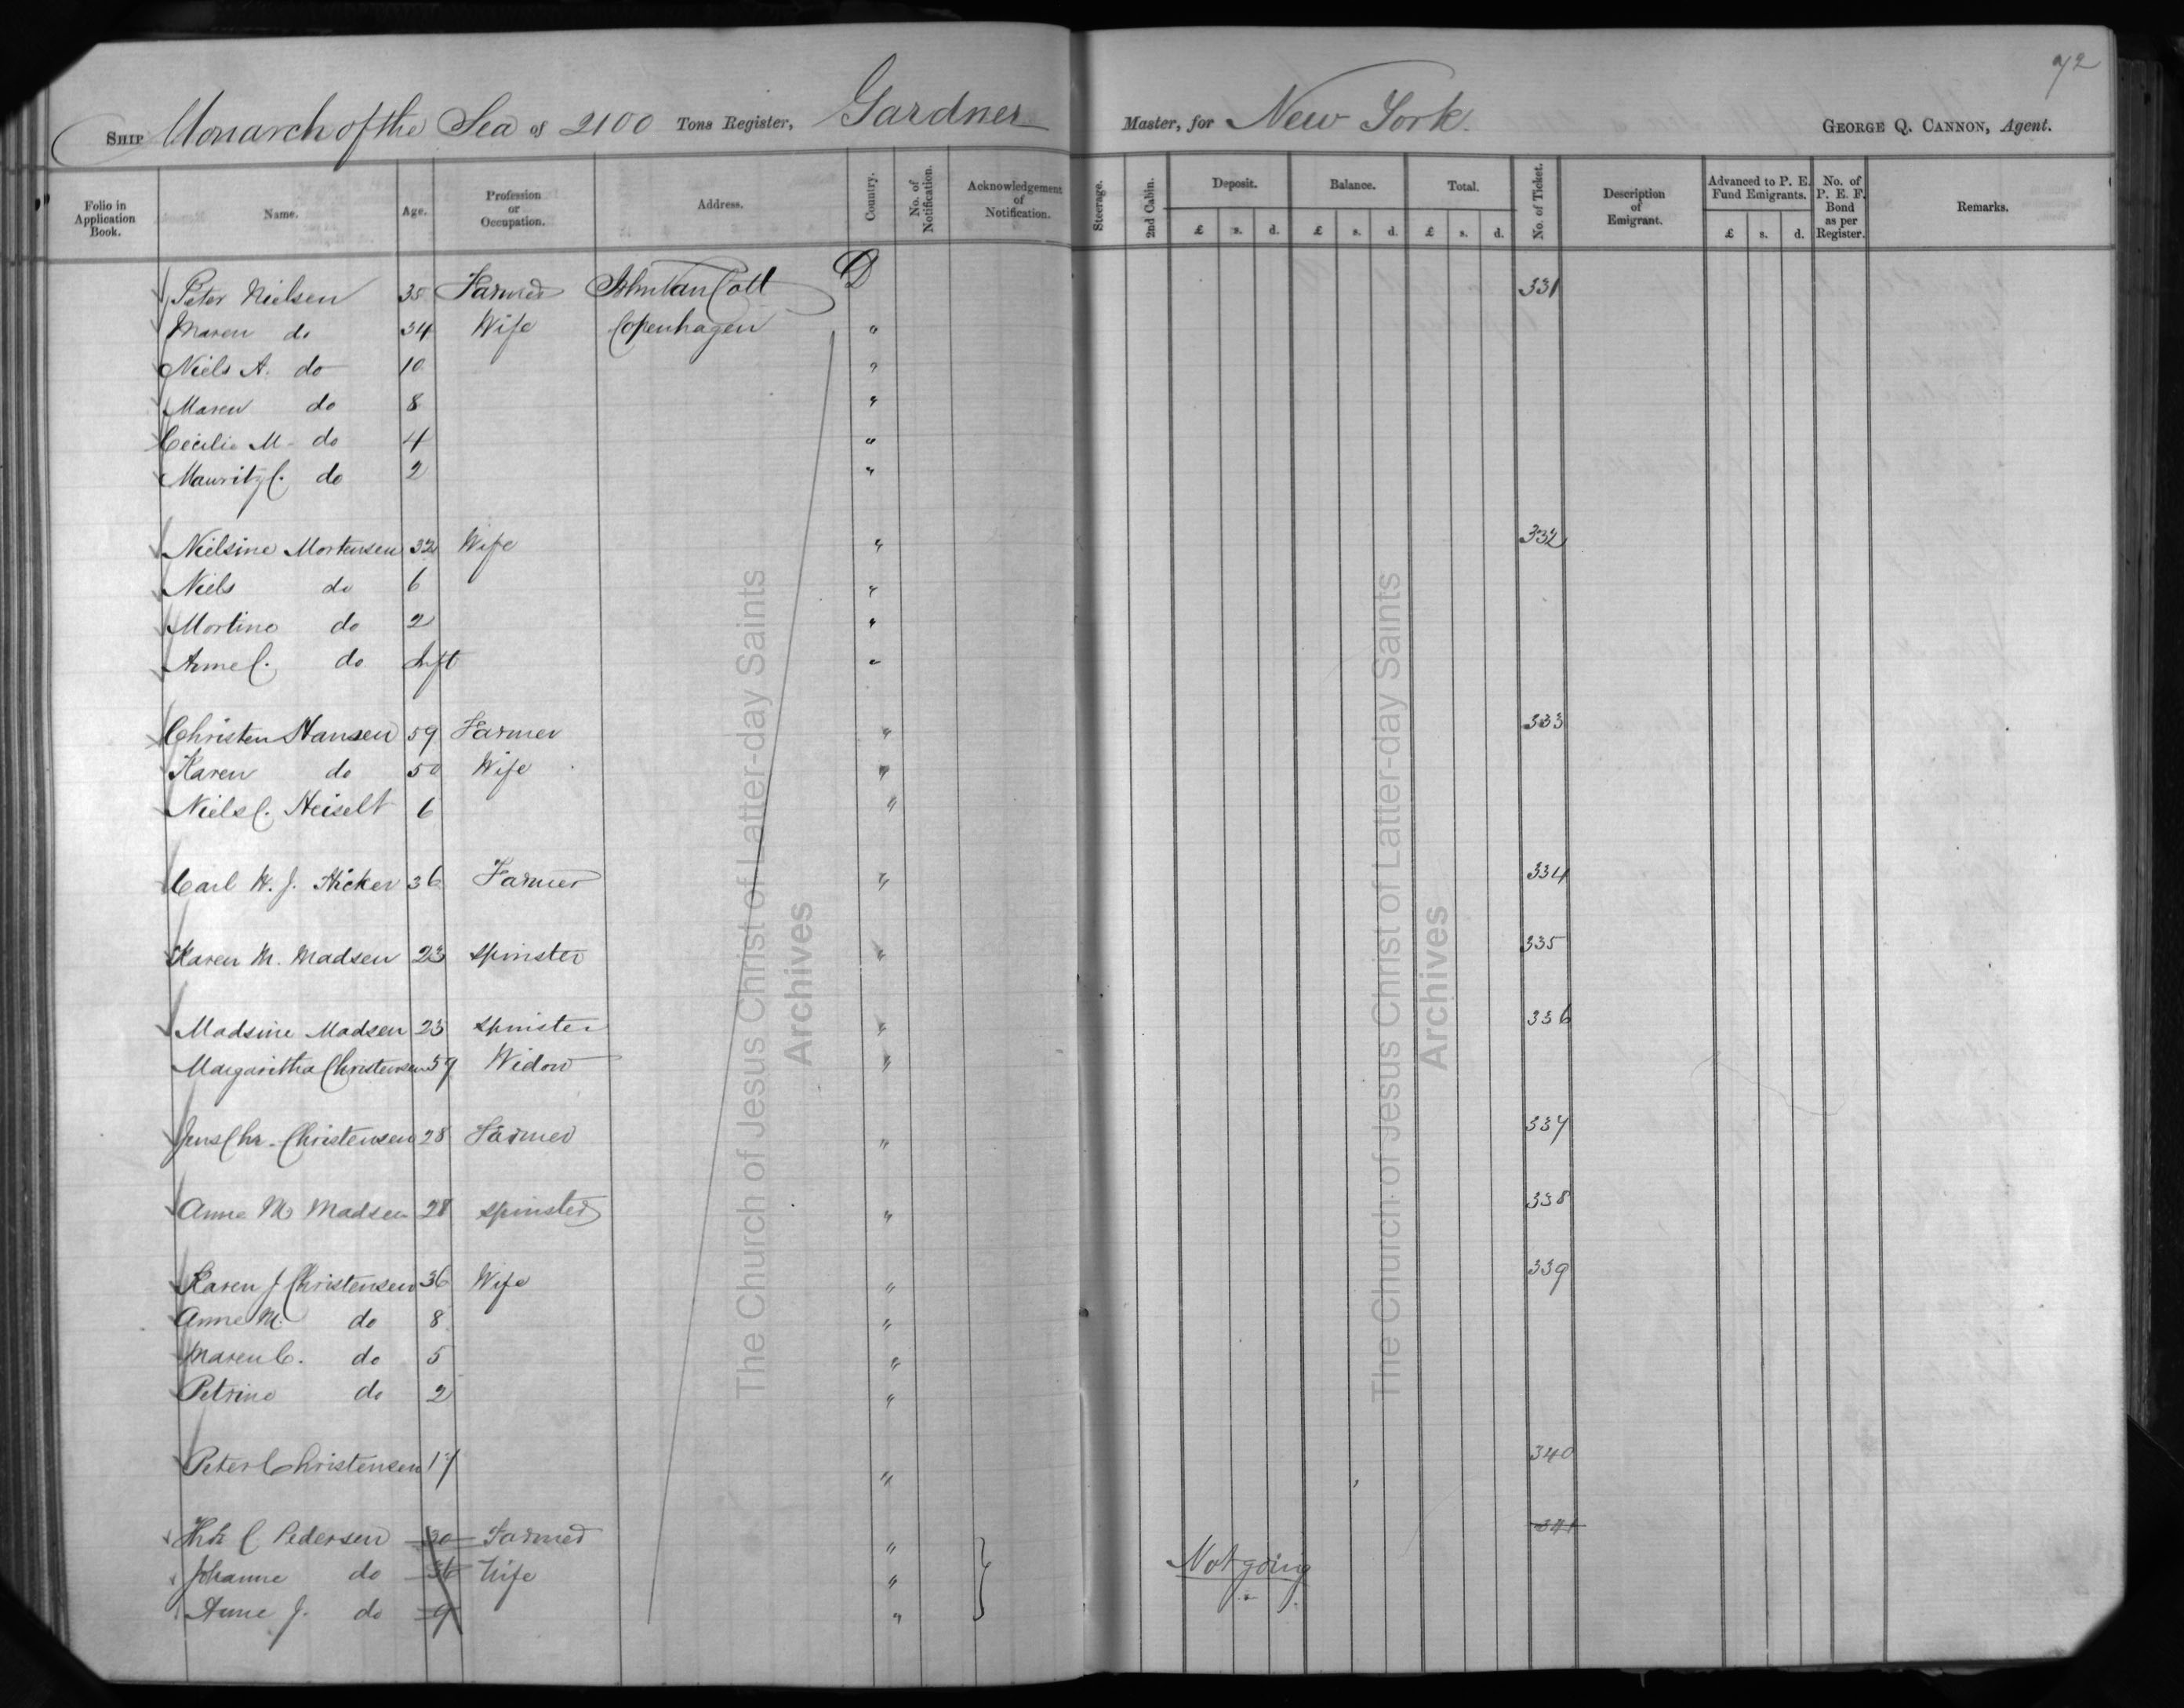 72
SHIP Monarch of the Sea of 2100 Tons Register, Gardner Master, for New York. GEORGE Q. CANNON, Agent.
Folio in Application Book. Name. Age. Profession or Occupation. Address. Country. No. of Notification. Acknowledgement of Notification. Steerage. 2nd Cabin. Deposit. Balance. Total. No. of Ticket. Description of Emigrant. Advanced to P. E. Fund Emigrants. No. of P. E. F. Bond as per Register. Remarks.
£ s. d. £ s. d. £ s. d. £ s. d.
Peter Nielsen 35 Farmer John Van Cott D 331
Maren do 34 Wife Copenhagen "
Niels A. do 10 "
Maren do 8 "
Cecilie M do 4 "
Mauritz C. do 2 "
Nielsine Mortensen 32 Wife " 332
Niels do 6 "
Mortine do 2 "
Anne C. do Inft "
Christen Hansen 59 Farmer " 333
Karen do 50 Wife "
Niels C. Heiselt 6 "
Carl W. J. Hicker 36 Farmer " 334
Karen M. Madsen 23 Spinster " 335
Madsine Madsen 23 Spinster " 336
Margaritha Christensen 59 Widow "
Jens Chr. Christensen 28 Farmer " 337
Anne M Madsen 28 Spinster " 338
Karen J Christensen 36 Wife " 339
Anne M. do 8 "
Maren C. do 5 "
Petrine do 2 "
Peter Christensen 17 " 340
C Pedersen 30 Farmer " 341
Johanne do 36 Wife " Not going
Anne J. do 9 "
The Church of Jesus Christ of Latter-day Saints
Archives
The Church of Jesus Christ of Latter-day Saints
Archives